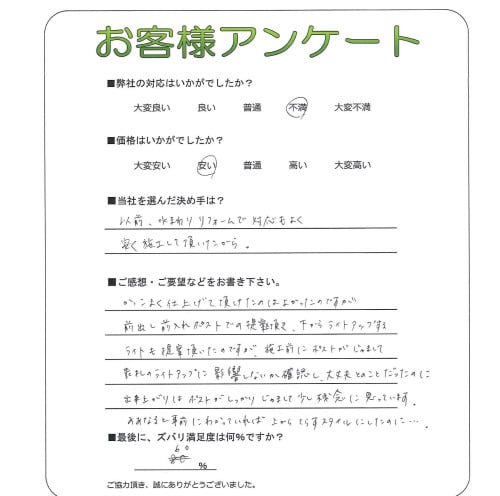 お客様アンケート
■弊社の対応はいかがでしたか？
大変良い 良い 普通 不満 大変不満
■価格はいかがでしたか？
大変安い 安い 普通 高い 大変高い
■当社を選んだ決め手は？
以前、水まわりリフォームで対応もよく
安く施工して頂いたから。
■ご感想・ご要望などをお書き下さい。
かっこよく仕上げて頂けたのはよかったのですが
前出し前入れポストでの提案頂き、下からライトアップする
ライトも提案頂いたのですが、施工前にポストがじゃまして
表札のライトアップに影響しないか確認し、大丈夫とのことだったのに
出来上がりはポストがしっかりじゃまして少し残念に思っています。
ああなると事前にわかっていれば上からてらすスタイルにしたのに…。
■最後に、ズバリ満足度は何%ですか？
60
%
ご協力頂き、誠にありがとうございました。